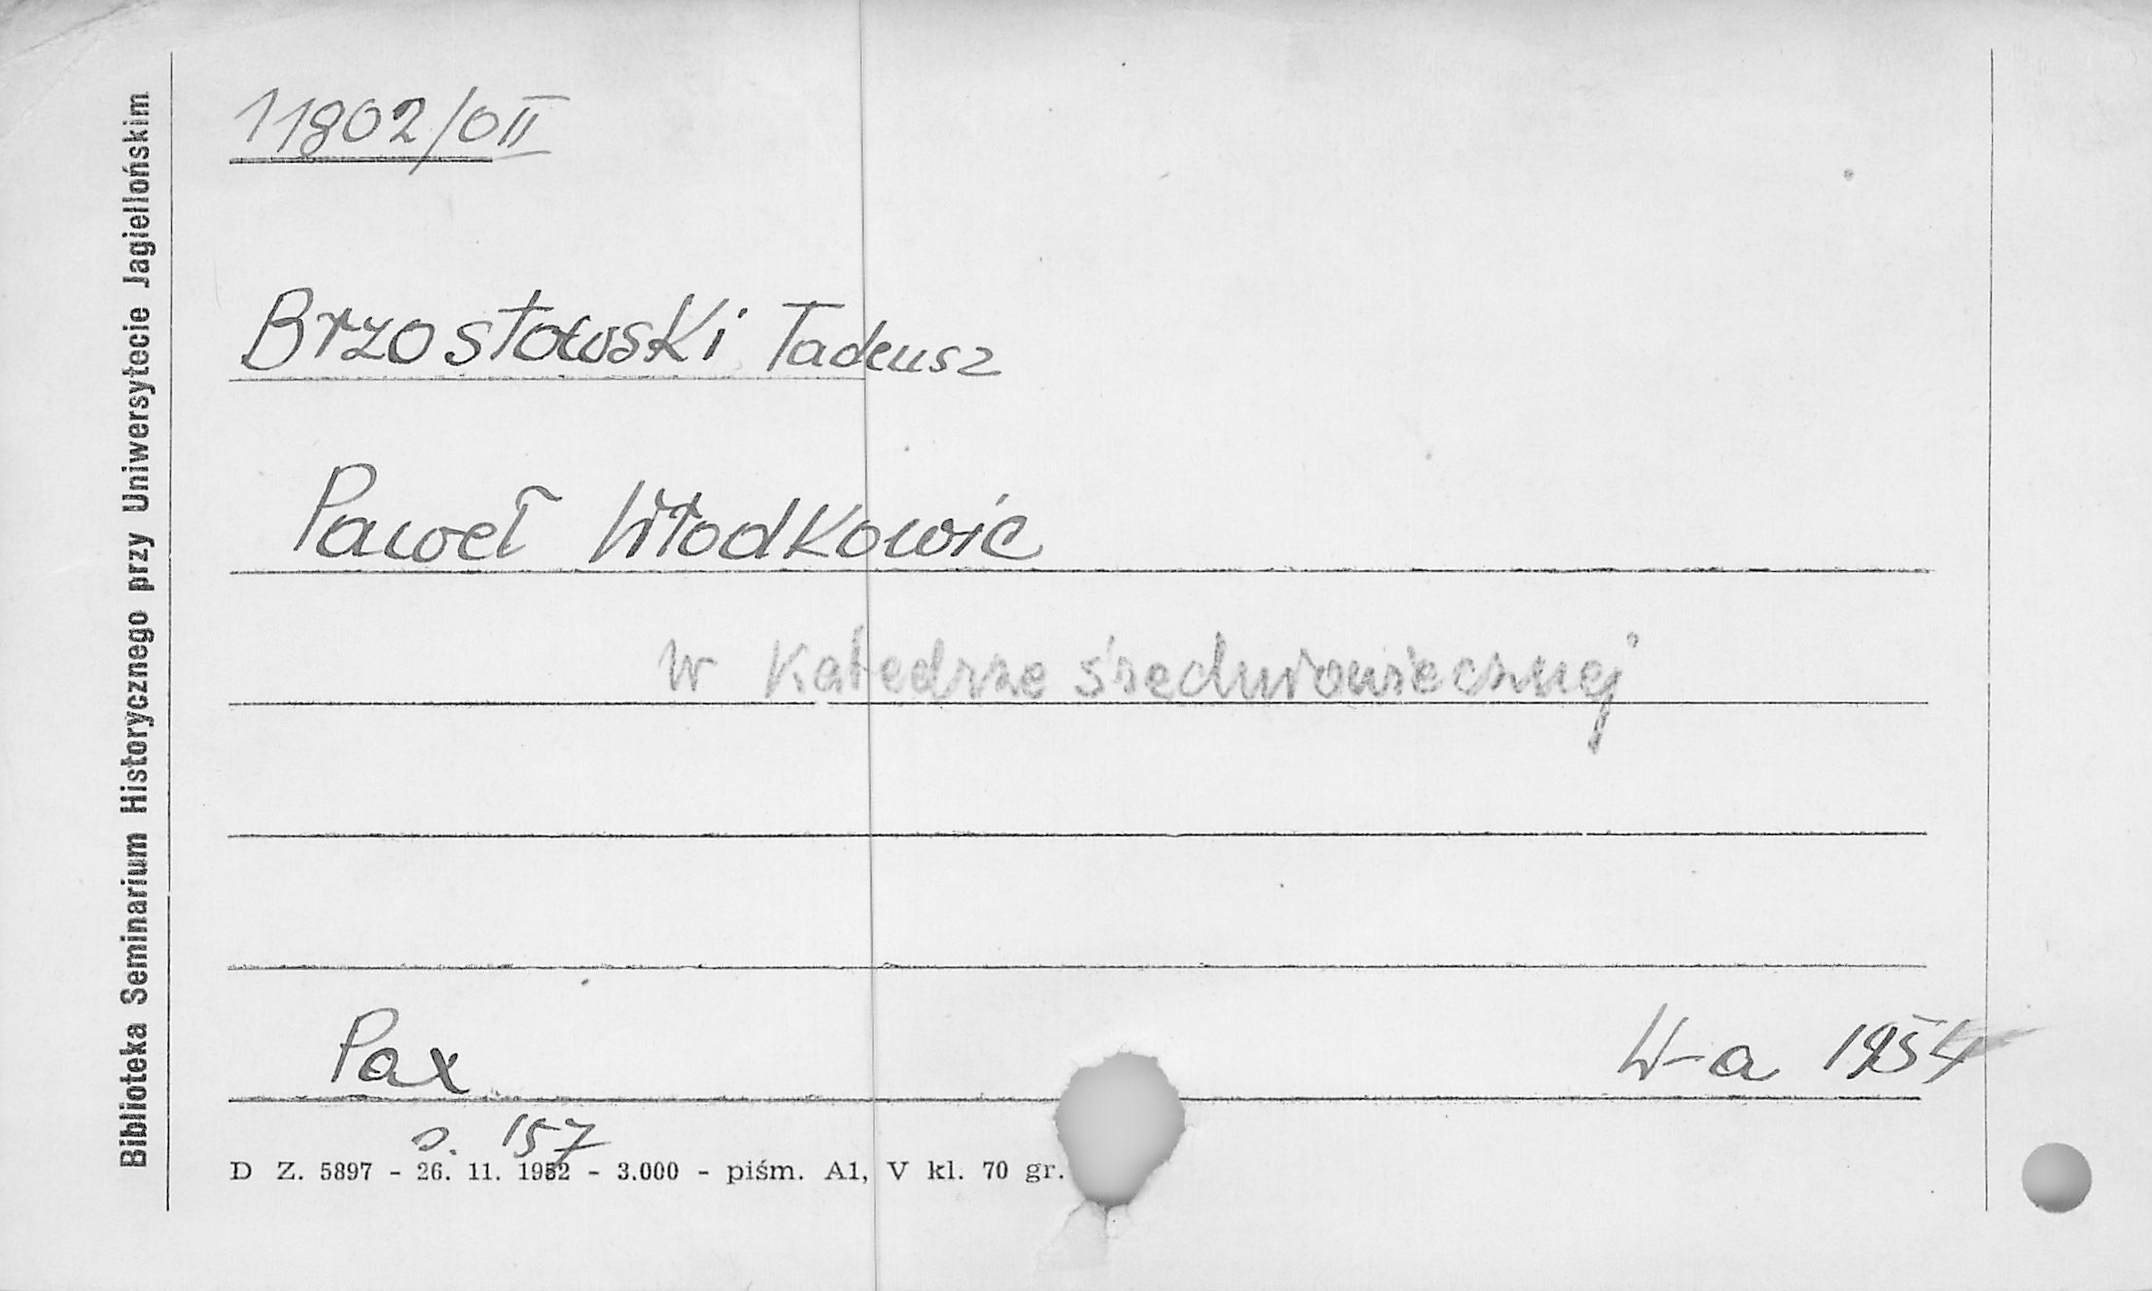 Biblioteka Seminarium Historycznego przy Uniwersytecie Jagiellońskim
11802/0II
Brzostowski Tadeusz
Paweł Włodkowic
w Katedrze średniowiecznej
Pax W-a 1954
s. 157
D Z. 5897 - 26. 11. 1952 - 3.000 - piśm. A1, V kl. 70 gr.